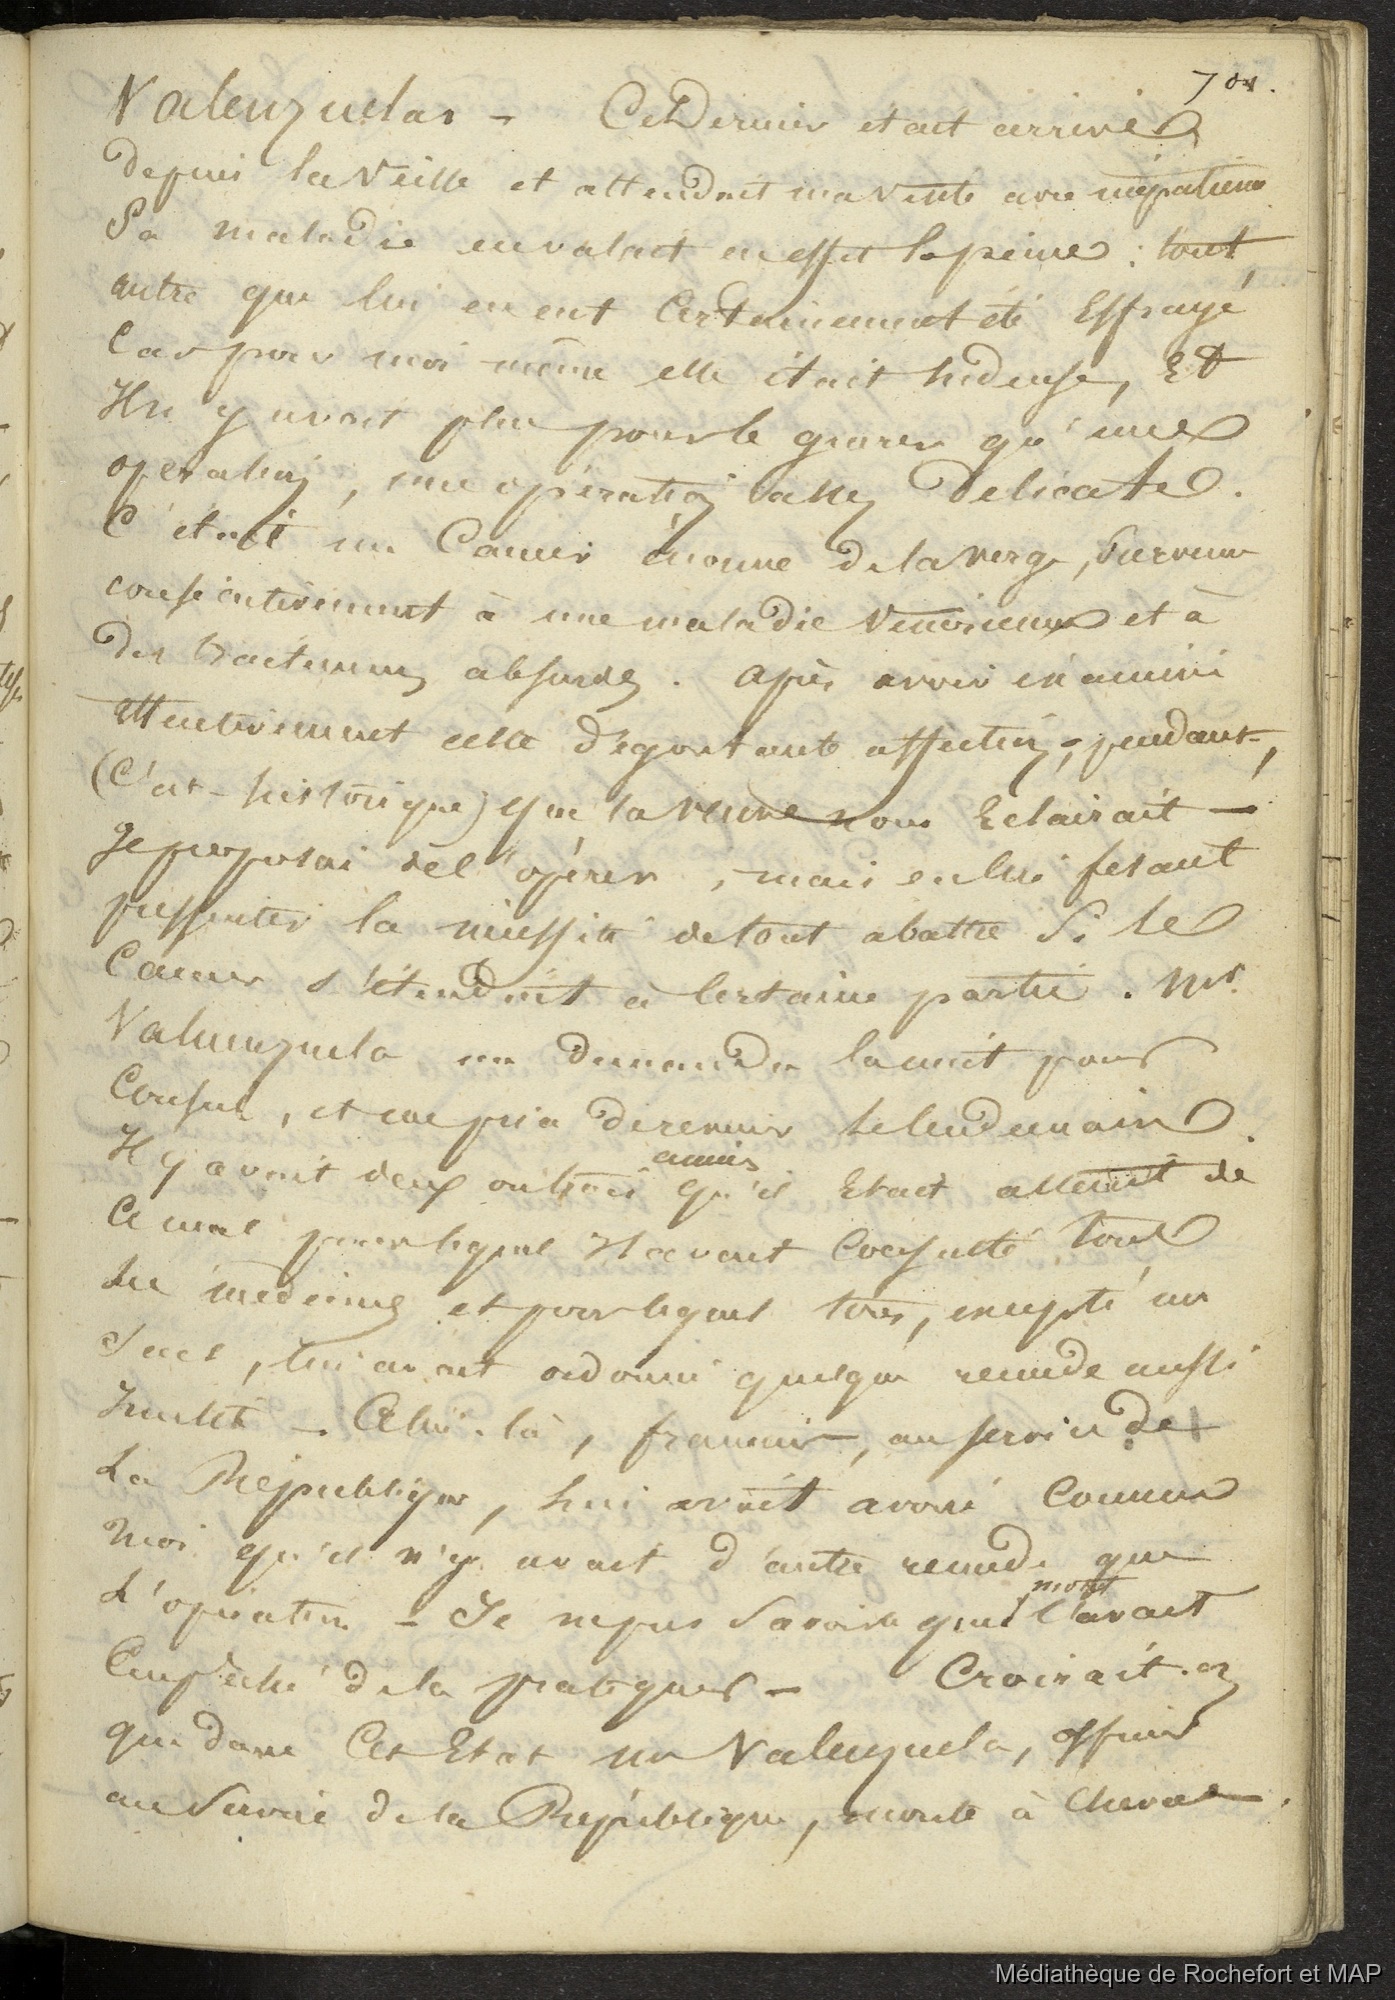 701.
Valenzuelas - Ce Dernier etait arrivé
depuis la veille et attendait ma visite avec impatience
Sa maladie en valait en effet la peine : tout
autre que lui en eut Certainement été Effrayé
Car pour moi même elle était hideuse, Et
Il n'y avait plus pour le guerir qu'une
operation, une opération assez Delicate.
C'était un Cancer énorme de la verge, Survenu
consécutivement à une maladie vénérienne et à
des traitemens absurdes. après avoir examiné
attentivement cette dégoutante affection, pendant,
(C'est historique) que la veuve nous Eclairait -
Je proposai de l'opérer, mais en lui fesant
pressentir la nécessité de tout abattre Si le
Cancer s'étendait à Certaine partie. Mr.
Valenzuela me demanda la nuit pour
Consul, et me pria de revenir le lendemain.
Il y avait deux ou trois années qu'il Etait atteint de
Ce mal pour lequel Il avait Consulté tous
Les médecins et pour lequel tous, excepté un
Seul, lui avait ordonné quelque remède aussi
Inutile - Celui-là, francais, au service de
La République, lui avait avoué Comme
moi qu'il n'y avait d'autre remède que
L'opération - Je ne pus Savoir quel motif l'avait
Empêché de la pratiquer - Croirait-on
que dans Cet Etat un Valenzuela, officier
au Service de la République, monte à Cheval
Médiathèque de Rochefort et MAP